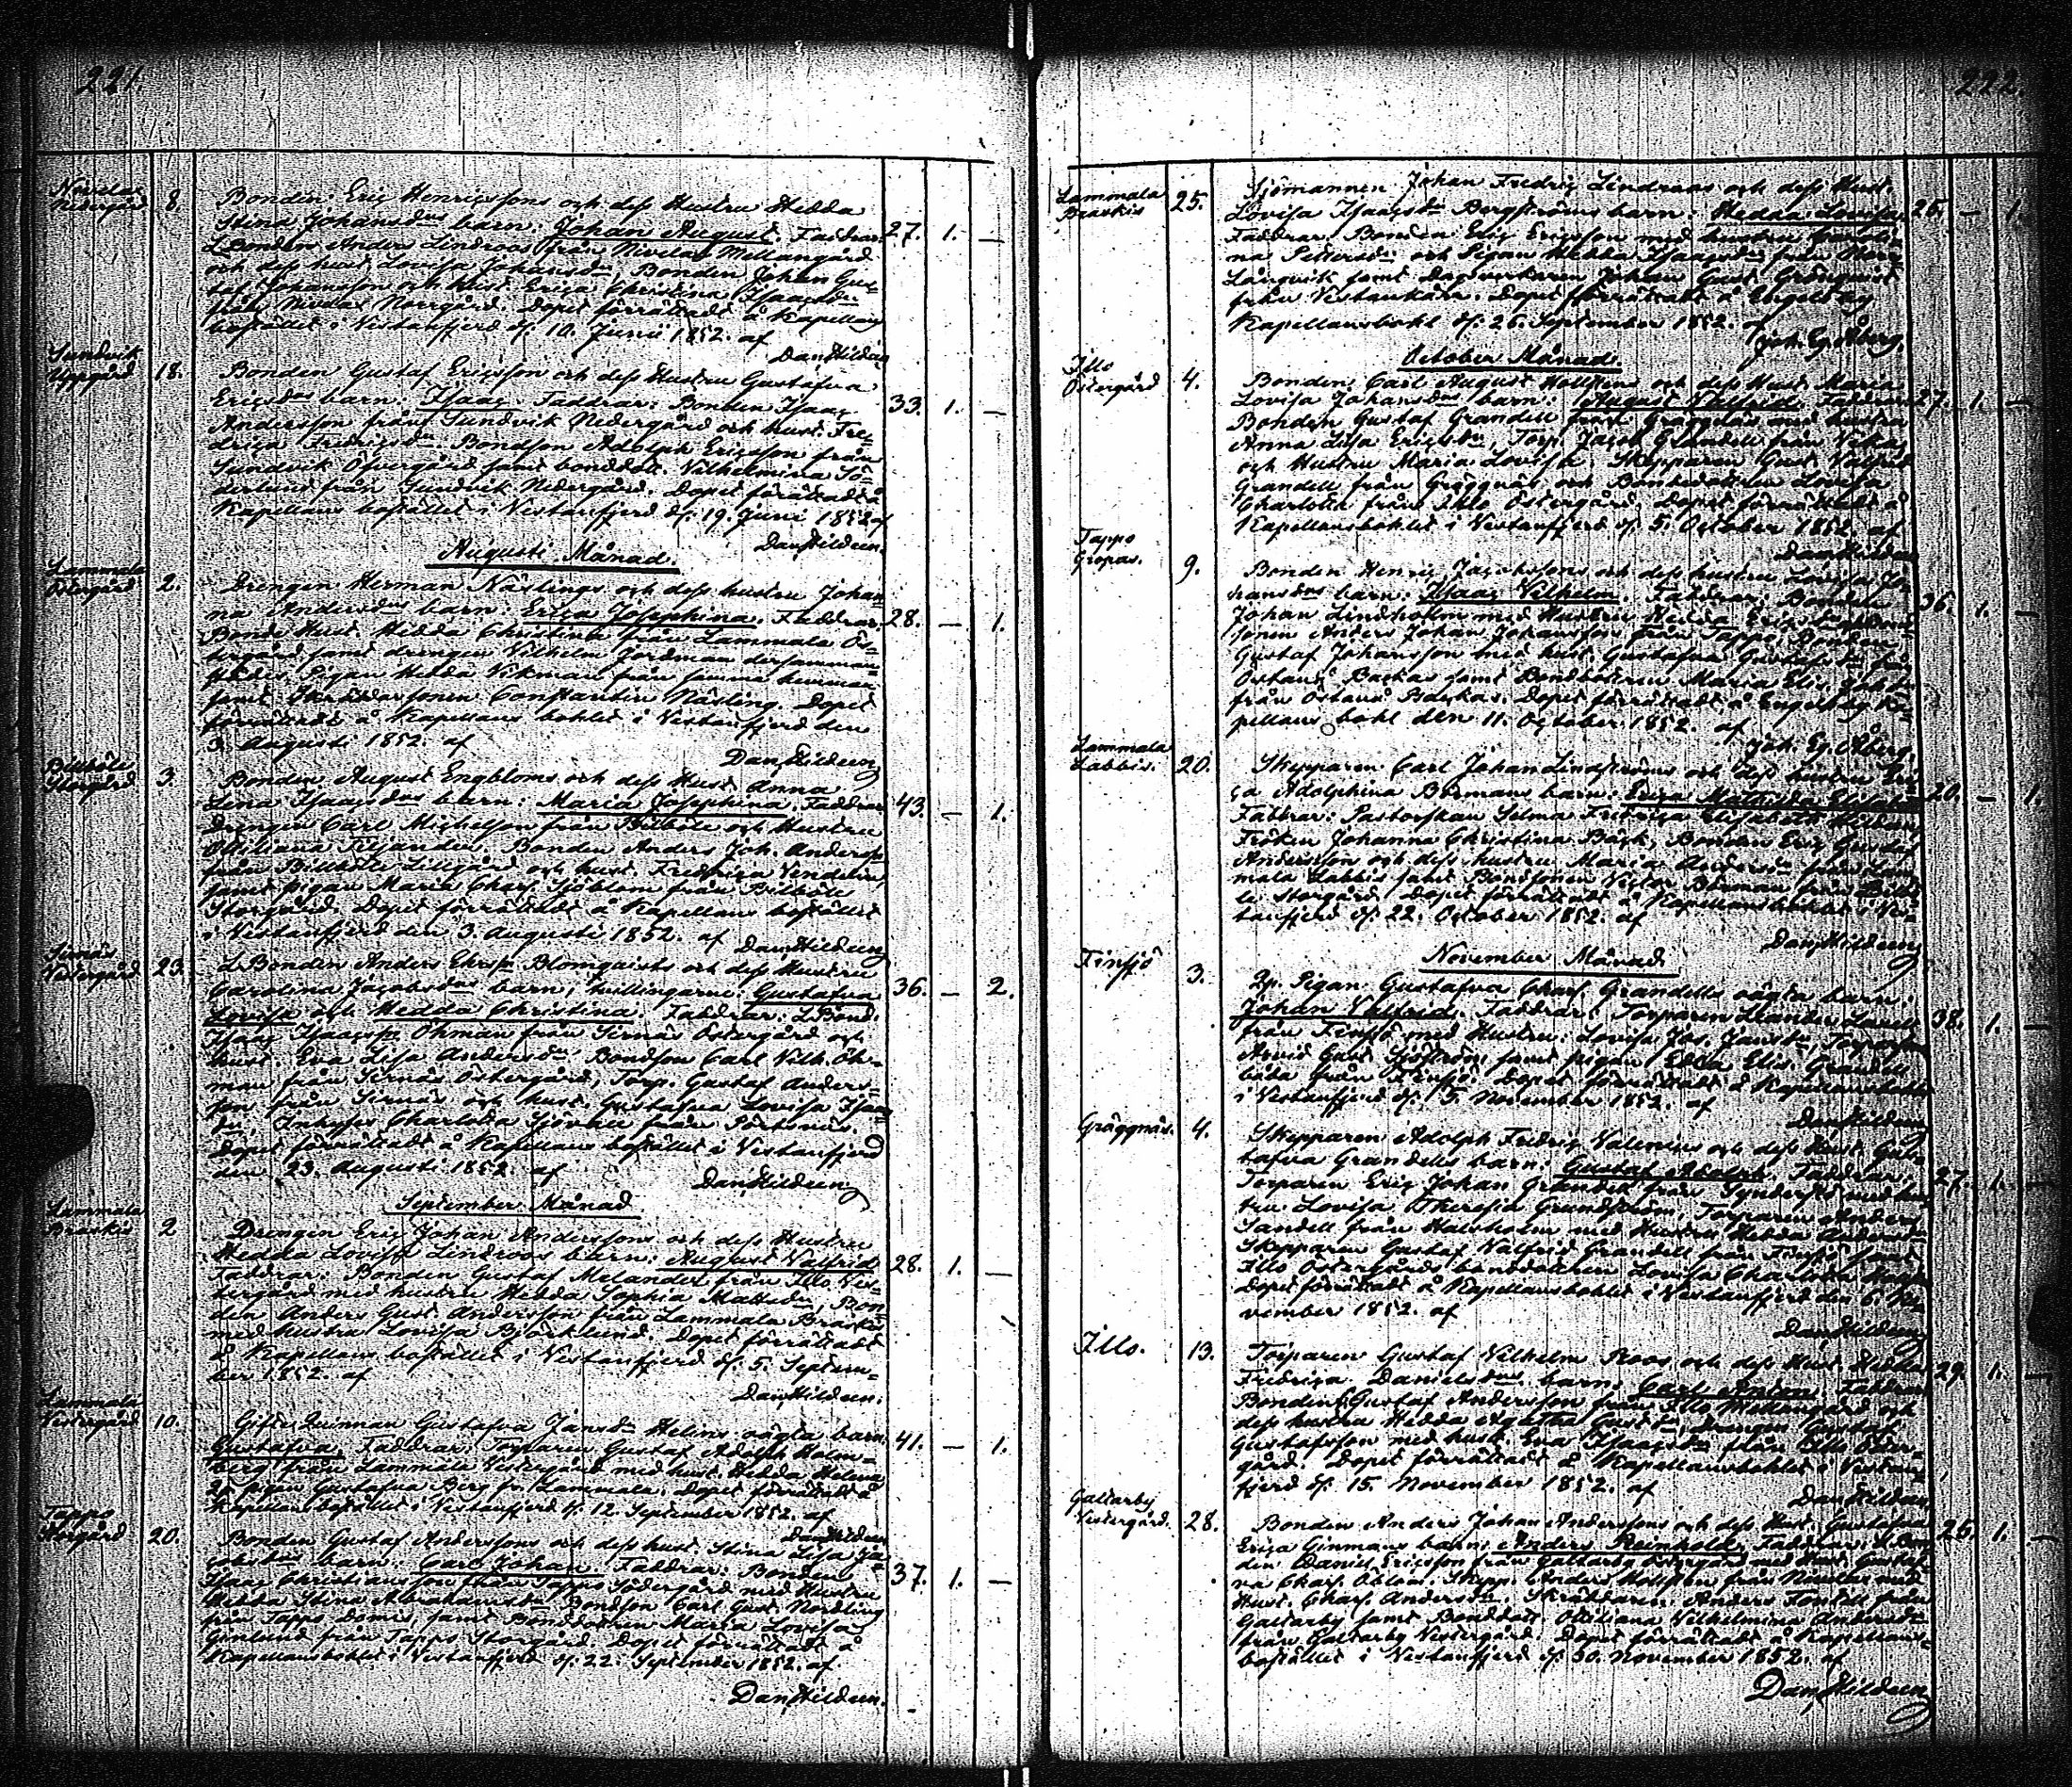 221.
Nivelax
Nedergård 8. Bonden Eric Henricssons och dess Hustru Hedda
Stina Johansdrs barn: Johan August. Faddrar: 27. 1. —
L.Bonden Anders Lindroos från Nivelax Mellangård
och dess hust. Lovisa Johansdr, Bonden Johan Gus-
taf Johansson och hust. Erica Christina Isaacsdr
från Nivelax Norrgård. Dopet förrättadt å Kapellans
bostället i Vestanfjerd d. 10. Junii 1852. af
Dan. Hildeen
Sundvik
Uppgård 18. Bonden Gustaf Ericsson och dess Hustru Gustafva
Ericsdrs barn: Isaac. Faddrar: Bonden Isaac 33. 1. —
Andersson från Sundvik Nedergård och hust. Fre-
drica Fredricsdr Bondson Adolph Ericsson från
Sundvik Öfvergård samt bonddot. Vilhelmina Sö-
derlund från Sundvik Nedergård. Dopet förättadt å
Kapellans bostället i Vestanfjerd d. 19. Juni 1852 af
Dan. Hildeen.
Augusti Månad.
Lammala
Östergård 2. Drengen Herman Näslings och dess hustru Johan-
na Andersdrs barn: Erica Josephina. Faddrar: 28. — 1.
Bonde Hust. Hedda Christina från Lammala Ös-
tergård samt drengen Vilhelm Jordman dersamma-
städes, Pigan Hedda Vikman från samma hemman
samt Skräddarsonen Constantin Näsling. Dopet
förrättadt å Kapellans bohlet i Vestanfjerd den
3. Augusti 1852. af
Dan. Hildeen
Billböle
Storgård 3. Bonden August Engbloms och dess Hust. Anna
Lina Isaacsdrs barn: Maria Josephina. Faddrar: 43. — 1.
Drengen Carl Michelson från Billböle och Hustru
Ottiliana Tiljander, Bonden Anders Joh. Andersson
från Billböle Lillgård och hust. Fredrica Vendelin,
samt pigan Maria Charl. Sjöblom från Billböle
Storgård. Dopet förrättadt å Kapellans bostället
i Vestanfjerd den 3. Augusti 1852. af Dan. Hildeen
Sirnäs
Vestergård 23. L.Bonden Anders Chrs:n Blomqvists och dess Hustru
Carolina Jacobsdrs barn, tvillingarne: Gustafva 36. — 2.
Lovisa och Hedda Christina. Faddrar: L.Bond.
Isaac Isaacson Öhman från Sirnäs Östergård och
hust. Eva Lisa Andersdr, Bondson Carl Vilh. Öh-
man från Sirnäs Östergård, Torp. Gustaf Anders-
son från Sirnäs och hust. Gustafva Lovisa Isaacs-
dr, Inhyses Charlotta Sjövall från Pörtsnäs.
Dopet förrättadt å Kapellans bostället i Vestanfjerd
den 23. Augusti 1852 af
Dan. Hildeen
September Månad
Lammala
Braskis 2 Drengen Eric Johan Anderssons och dess Hustru
Hedda Lovisa Lindroos barn: August Valfrid 28. 1. —
Faddrar: Bonden Gustaf Melander från Illo Ves-
tergård med hustru Hedda Sophia Mattsdr, Bon-
den Anders Gust. Andersson från Lammala Braskis
med hustru Lovisa Björklund. Dopet förrättadt
å Kapellans bostället i Vestanfjerd d. 5. Septem-
ber 1852. af
Dan. Hildeen.
Lammala
Vestergård 10. Gifta Qvinnan Gustafva Jansdr Helins oägta barn: 41. — 1.
Gustafva. Faddrar: Torparen Gustaf Adolph Holm-
berg från Lammala Vestergård med hust. Hedda Helena
Qp. pigan Gustafva Berg fr. Lammala. Dopet förrättadt å
Kapellans bostället i Vestanfjerd d. 12. September 1852. af
Dan. Hildeen
Tappo
Storgård 20. Bonden Gustaf Anderssons och dess hust. Stina Lisa Ja-
cobsdrs barn: Carl Johan. Faddrar: Bonden 37. 1. —
Isaac Christiansson från Tappo Södergård med Hustru
Hedda Stina Abrahamsdr Bondson Carl Gust. Nordling
från Tappo Domis, samt Bonddottren Maria Lovisa
från Tappo Storgård. Dopet förrättadt å
Kapellansbohlet i Vestanfjerd d. 22. September 1852. af
Dan. Hildeen.
222.
Lammala
Braskis 25. Sjömannen Johan Fredric Lindroos och dess Hust.
Lovisa Isaacsdr Bergströms barn: Hedda Lovisa 26. — 1.
Faddrar: Bonden Eric Ericsson med hustru
na Pettersdr och Pigan Hedda Isaacsdr från Norr-
Långvik samt Dagsverkaren Johan Gust. Grönqvist
från Vestankärr. Dopet förrättadt å Engelsby
Kapellansbohl d. 26. September 1852. af
Joh. Eg. Åberg.
October Månad.
Illo
Östergård 4. Bonden Carl August Holmens och dess Hust. Maria
Lovisa Johansdrs barn: August Valfrid. Faddrar: 27. 1. —
Bonden Gustaf Grandell från Gräggnäs med hustru
Anna Lisa Ericsdr, Torp. Jacob Grandell från Vekas
och Hustru Maria Lovisa, Skepparen Gust. Valfrid
Grandell från Gräggnäs och Bonddottren Lovisa
Charlotta från Illo Östergård. Dopet förrättadt å
Kapellansbohlet i Vestanfjerd d. 5. October 1852 af
Dan. Hildeen
Tappo
Gropas. 9. Bonden Henric Jacobssons och dess hustru Lovisa Jo-
hansdrs barn: Isaac Vilhelm. Faddrar: Bonden 36. 1. —
Johan Lindholm med Hustru Hedda Ericsdr
sonen Anders Johan Johansson från Tappo, Bonden
Gustaf Johansson med hust. Gustafva Gustafsdr från
Östanå Backas samt Bonddottren Maria Elis.
från Östanå Backas. Dopet förrättadt å Engelsby Ka-
pellans bohl den 11. October 1852. af
Joh. Eg. Åberg.
Lammala
Labbis. 20. Skepparen Carl Johan Lindströms och dess hustru Eri-
ca Adolphina Börmans barn: Erica Mathilda Elisab. 20. — 1.
Faddrar: Pastorskan Selma Fredrica Elisabeth Hildeen
Fröken Johanna Christina Bäck, Bonden Eric Gustaf
Andersson och dess hustru Maria Andersdr från Lam-
mala Labbis samt Bondsonen Victor Börman från Billbö-
le Storgård. Dopet förrättadt å Kapellansbohlet i Ves-
tanfjerd d. 22. October 1852. af
Dan. Hildeen
November Månad.
Finsjö 3. Qp. Pigan Gustafva Charl. Grandells oägta barn:
Johan Valfrid. Faddrar: Torparen Leander 38. 1. —
från Finsjö med Hustru Lovisa Jos. Jansdr,
Arvid Gust. Sjöström samt pigan Edda Elis. Grandell
båda från Finsjö. Dopet förrättadt å Kapellansbohlet
i Vestanfjerd d. 5. November 1852. af
Dan. Hildeen
Gräggnäs. 4. Skepparen Adolph Fredric Valenius och dess Hust. Gus-
tafva Grandells barn: Gustaf Adolph. Faddrar: 27. 1. —
Torparen Eric Johan Grandell från med hus-
tru Lovisa Theresia Grundström, Torparen Anders
Sandell från Halsholm med Hustru Hedda Andersdr
Skepparen Gustaf Valfrid Grandell från Finsjö samt
Illo Östergårds bonddottren Lovisa Charlotta
Dopet förrättadt å Kapellansbohlet i Vestanfjerd den 6. No-
vember 1852. af
Dan. Hildeen
Illo. 13. Torparen Gustaf Vilhelm Roos och dess Hust. Hedda
Fredrica Danielsdrs barn: Carl Anton. Faddrar: 29. 1. —
Bonden Gustaf Andersson från Illo Mellangård och
dess hustru Hedda Agatha Gustdr, drengen Gustaf
Gustafsson med hust. Eva Isaacsdr från Illo Öster-
gård. Dopet förrättadt å Kapellansbohlet i Vestan-
fjerd d. 15. November 1852. af
Dan. Hildeen
Galtarby
Vestergård. 28. Bonden Anders Johan Anderssons och dess Hust. Gustafva
Erica Ginmans barn: Anders Reinhold. Faddrar: L.Bon- 26. 1. —
den Daniel Ericsson från Galtarby Östergård med Hust. Gustaf-
va Charl. Öblom, Skepp. Anders från Nivelax med
Hust. Charl. Andersdr, Skräddaren Anders från
Galtarby samt Bonddot. Ottiliana Vilhelmina Andersdr
från Galtarby Vestergård. Dopet förrättadt å Kapellans-
bostället i Vestanfjerd d. 30. November 1852. af
Dan. Hildeen